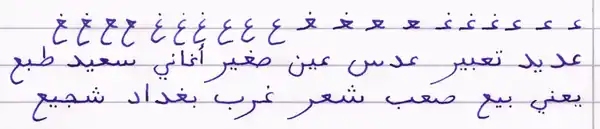 عديد تعبير عدس عين صغير أغاني سعيد طبع
يعني بيع صعب شعر غرب بغداد شجيع